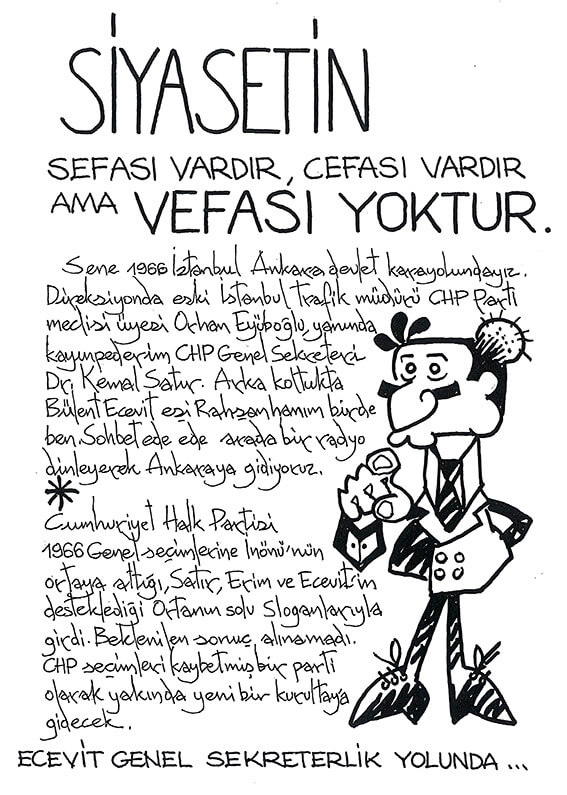 SİYASETİN
SEFASI VARDIR, CEFASI VARDIR
AMA VEFASI YOKTUR.
Sene 1966 İstanbul Ankara devlet karayolundayız.
Direksiyonda eski İstanbul Trafik müdürü CHP Parti
meclisi üyesi Orhan Eyüboğlu, yanında
kayınpederim CHP Genel Sekreteri
Dr. Kemal Satır. Arka koltukta
Bülent Ecevit eşi Rahşan hanım birde
ben. Sohbet ede ede arada bir radyo
dinleyerek Ankaraya gidiyoruz.
*
Cumhuriyet Halk Partisi
1966 Genel seçimlerine İnönü'nün
ortaya attığı, Satır, Erim ve Ecevit'in
desteklediği Ortanın solu Sloganlarıyla
girdi. Beklenilen sonuç alınamadı.
CHP seçimleri kaybetmiş bir parti
olarak yakında yeni bir kurultaya
gidecek.
ECEVİT GENEL SEKRETERLİK YOLUNDA ...